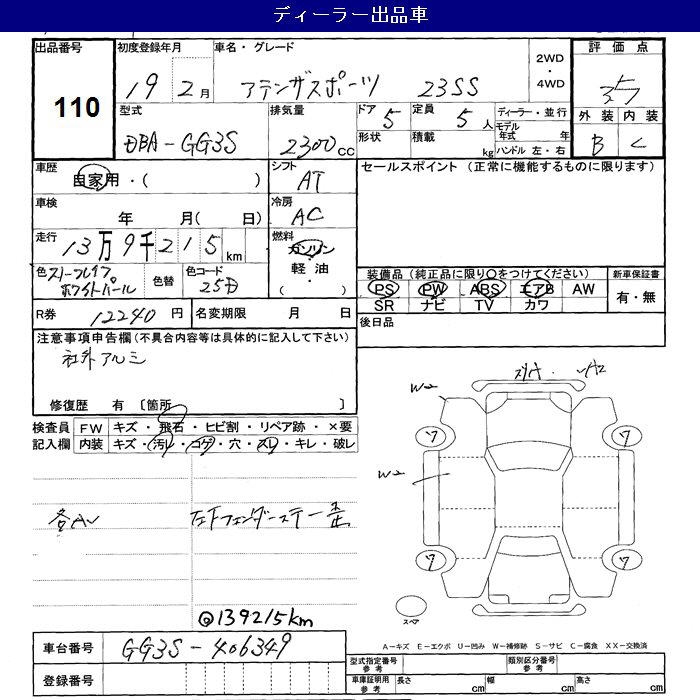 ディーラー出品車
出品番号 初度登録年月 車名・グレード 2WD ・ 4WD 評価点
110 19 2月 アテンザスポーツ 23SS 3.5
型式 排気量 ドア 定員 ディーラー・並行 外装 内装
DBA-GG3S 2300cc 5 5人 モデル年式 年 B C
形状 積載 kg ハンドル 左・右
車歴 自家用・( ) シフト AT セールスポイント (正常に機能するものに限ります)
車検 年 月( 日) 冷房 AC
走行 13万9千215km 燃料 ガソリン・軽油・( )
色 ホワイトパール 色替 色コード 25D
装備品(純正品に限り○をつけてください) 新車保証書
PS PW ABS エアB AW 有・無
SR ナビ TV カワ
R券 12240円 名変期限 月 日 後日品
注意事項申告欄(不具合内容等は具体的に記入して下さい)
社外アルミ
修復歴 有 [箇所 ]
検査員記入欄 FW キズ・飛石・ヒビ割・リペア跡・×要
内装 キズ・汚レ・コゲ・穴・スレ・キレ・破レ
W2
7 7
W2
各AU 左Fフェンダーステー歪
7 7
@139215km
スペア
A-キズ E-エクボ U-凹み W-補修跡 S-サビ C-腐食 XX-交換済
車台番号 GG3S-406349
型式指定番号 参考 類別区分番号 参考
登録番号
車庫証明用 参考 長さ cm 幅 cm 高さ cm